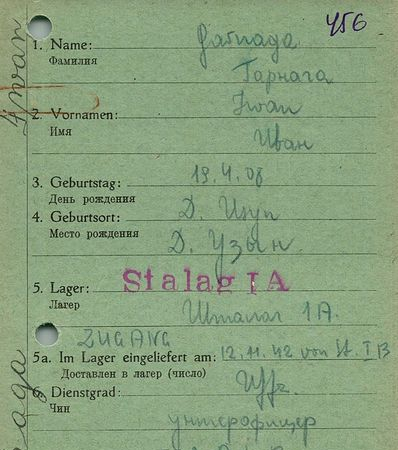 456
1. Name:
Фамилия
Гарнага
2. Vornamen: Iwan
Имя
Иван
3. Geburtstag: 19.4.08
День рождения
4. Geburtsort: D.
Место рождения
Д. Узын.
5. Lager: Stalag IA
Лагер
Шталаг 1А.
ZUGANG
5a. Im Lager eingeliefert am: 12.11.42 von St. I B
Доставлен в лагер (число)
6 Dienstgrad: Uffz.
Чин
унтерофицер
Iwan